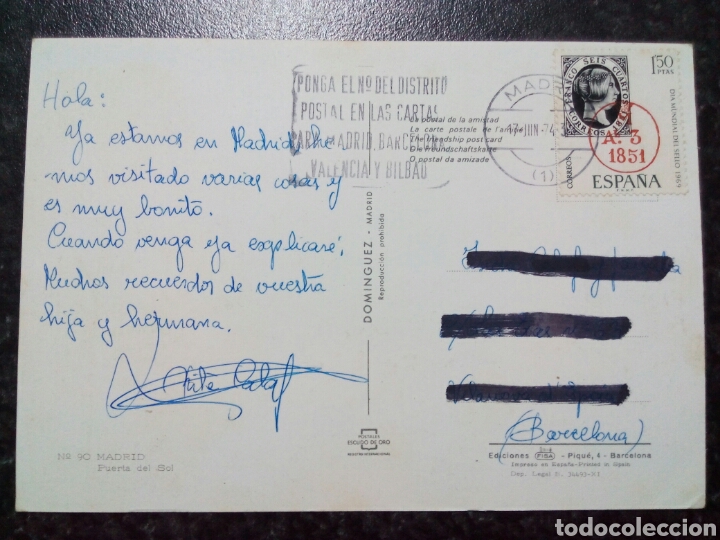 Hola:
Ya estamos en Madrid, he-
mos visitado varias cosas y
es muy bonito.
Cuando venga ya explicaré,
Muchos recuerdos de vuestra
hija y hermana.
Nº 90 MADRID
Puerta del Sol
PONGA EL Nº DEL DISTRITO
POSTAL EN LAS CARTAS
PARA MADRID, BARCELONA
VALENCIA Y BILBAO
La postal de la amistad
La carte postale de l'amitié
The friendship post card
Die Freundschaftskarte
O postal da amizade
MADRID
17 JUN. 74
(1)
FRANCO SEIS CUARTOS
CORREOS 1851
1'50
PTAS
DIA MUNDIAL DEL SELLO 1969
CORREOS
A. 3
1851
ESPAÑA
DOMINGUEZ - MADRID
Reproducción prohibida
POSTALES
ESCUDO DE ORO
(Barcelona)
Ediciones FISA - Piqué, 4 - Barcelona
Impreso en España-Printed in Spain
todocoleccion.net